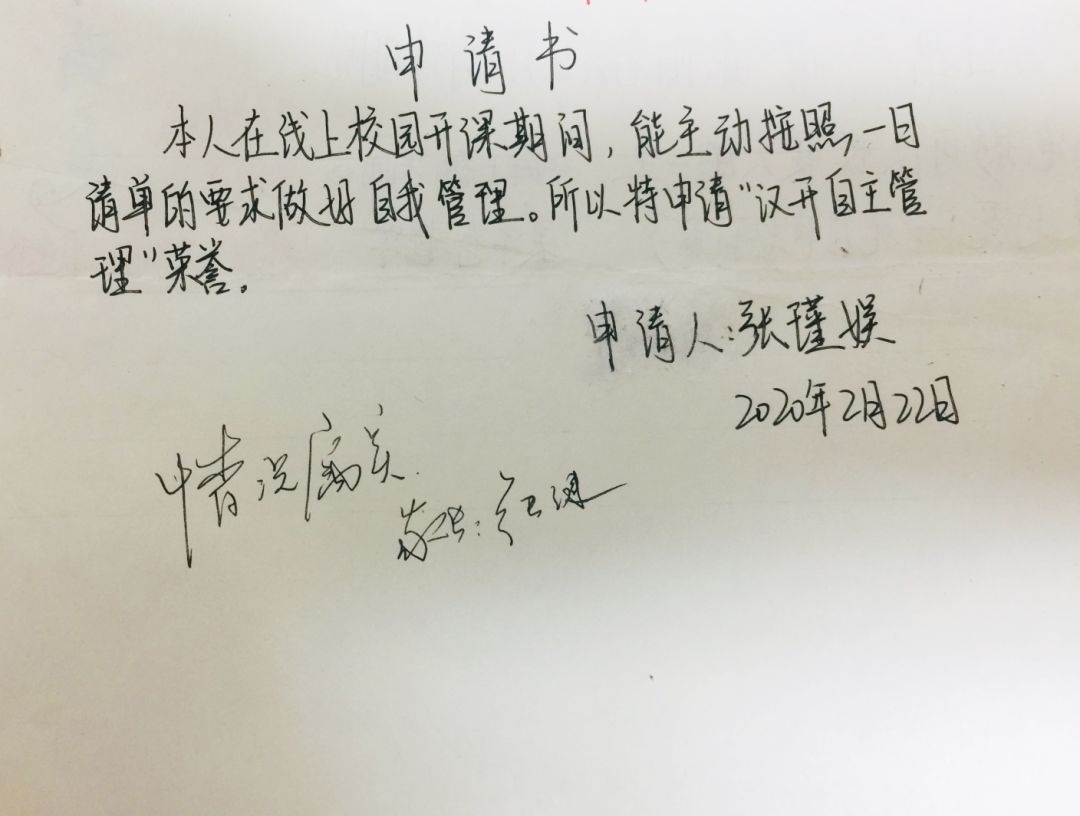 申请书
本人在线上校园开课期间，能主动按照一日
清单的要求做好自我管理。所以特申请“汉开自主管
理”荣誉。
申请人：张瑾娱
2020年2月22日
情况属实.
家长：